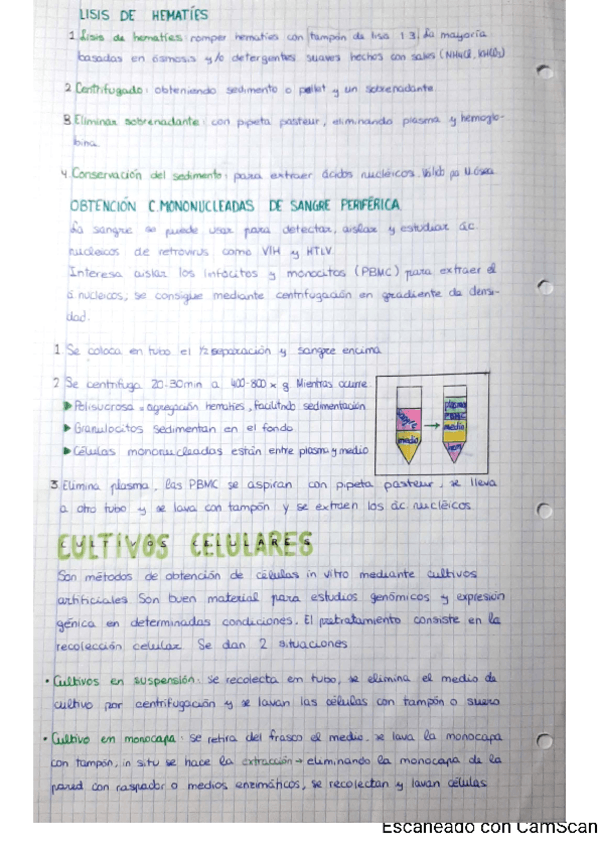 LISIS DE HEMATÍES
1 Lisis de hematíes: romper hematíes con tampón de lisis 1:3. La mayoría
basadas en ósmosis y/o detergentes suaves hechos con sales (NH4Cl, KHCO3)
2. Centrifugado: obteniendo sedimento o pellet y un sobrenadante.
3. Eliminar sobrenadante: con pipeta pasteur, eliminando plasma y hemoglo-
bina.
4. Conservación del sedimento: para extraer ácidos nucléicos. Válido pa M. ósea
OBTENCIÓN C.MONONUCLEADAS DE SANGRE PERIFÉRICA
La sangre se puede usar para detectar, aislar y estudiar ác.
nucleicos de retrovirus como VIH y HTLV.
Interesa aislar los linfocitos y monocitos (PBMC) para extraer el
á nucleicos; se consigue mediante centrifugación en gradiente de densi-
dad.
1 Se coloca en tubo el ½ separación y sangre encima
2 Se centrifuga 20-30min a 400-800 x g. Mientras ocurre
Polisucrosa = agregación hematíes, facilitndo sedimentación
Granulocitos sedimentan en el fondo
Células mononucleadas están entre plasma y medio
sangre
medio
→
plasma
PBMC
medio
hem
3 Elimina plasma, las PBMC se aspiran con pipeta pasteur, se lleva
a otro tubo y se lava con tampón y se extraen los ác. nucléicos.
CULTIVOS CELULARES
Son métodos de obtención de células in vitro mediante cultivos
artificiales. Son buen material para estudios genómicos y expresión
génica en determinadas condiciones. El pretratamiento consiste en la
recolección celular. Se dan 2 situaciones
• Cultivos en suspensión: se recolecta en tubo, se elimina el medio de
cultivo por centrifugación y se lavan las células con tampón o suero
• Cultivo en monocapa: se retira del frasco el medio, se lava la monocapa
con tampón, in situ se hace la extracción → eliminando la monocapa de la
pared con raspador o medios enzimáticos, se recolectan y lavan células
Escaneado con CamScan